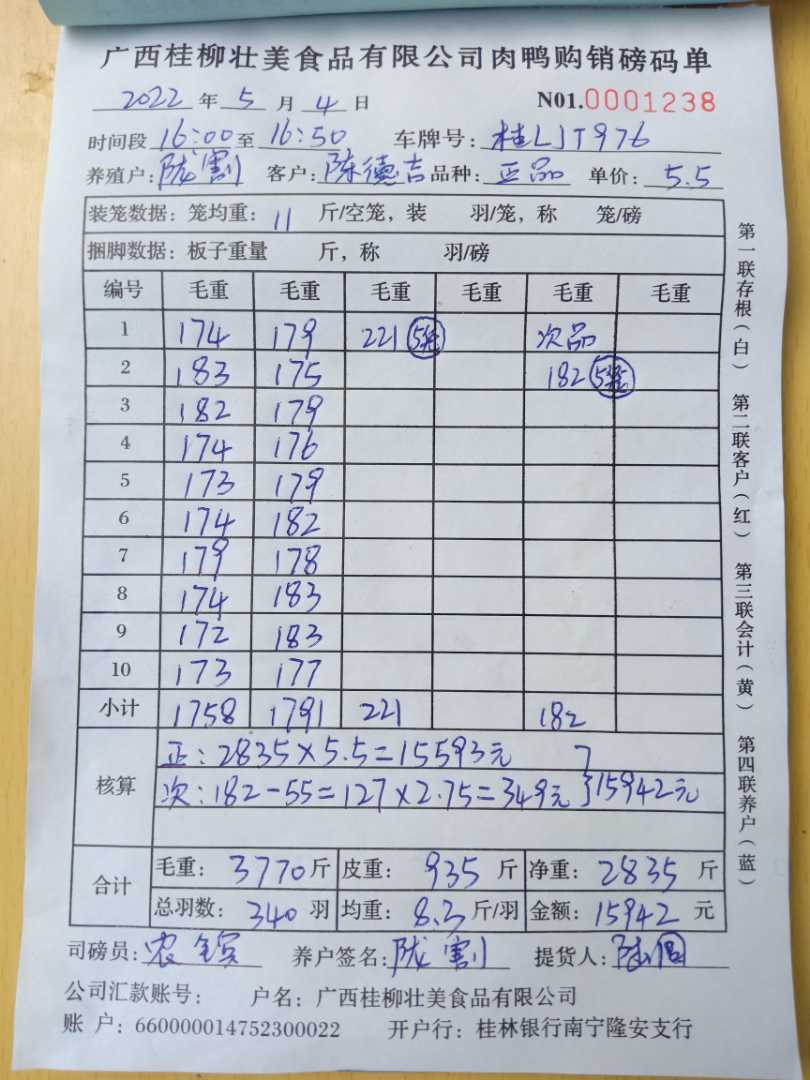 广西桂柳壮美食品有限公司肉鸭购销磅码单
2022 年 5 月 4 日 N01.0001238
时间段 16:00 至 16:50 车牌号: 桂LJT976
养殖户: 陇割 客户: 陈德吉 品种: 正品 单价: 5.5
装笼数据: 笼均重: 11 斤/空笼, 装 羽/笼, 称 笼/磅
捆脚数据: 板子重量 斤, 称 羽/磅
编号 毛重 毛重 毛重 毛重 毛重 毛重
1 174 179 221 次品
2 183 175 182
3 182 179
4 174 176
5 173 179
6 174 182
7 179 178
8 174 183
9 172 183
10 173 177
小计 1758 1791 221 182
核算
正: 2835×5.5=15593元
次: 182-55=127×2.75=349元 }15942元
合计
毛重: 3770 斤 皮重: 935 斤 净重: 2835 斤
总羽数: 340 羽 均重: 8.3 斤/羽 金额: 15942 元
司磅员: 养户签名: 陇割 提货人:
公司汇款账号: 户名: 广西桂柳壮美食品有限公司
账 户: 660000014752300022 开户行: 桂林银行南宁隆安支行
第一联存根(白) 第二联客户(红) 第三联会计(黄) 第四联养户(蓝)